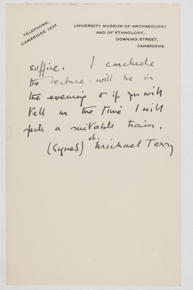 TELEPHONE:
CAMBRIDGE 1937.
UNIVERSITY MUSEUM OF ARCHAEOLOGY
AND OF ETHNOLOGY,
DOWNING STREET,
CAMBRIDGE
suffice. I conclude
the lecture will be in
the evening & if you will
tell me the time I will
pick a suitable train.
(Signed) Michael Terry